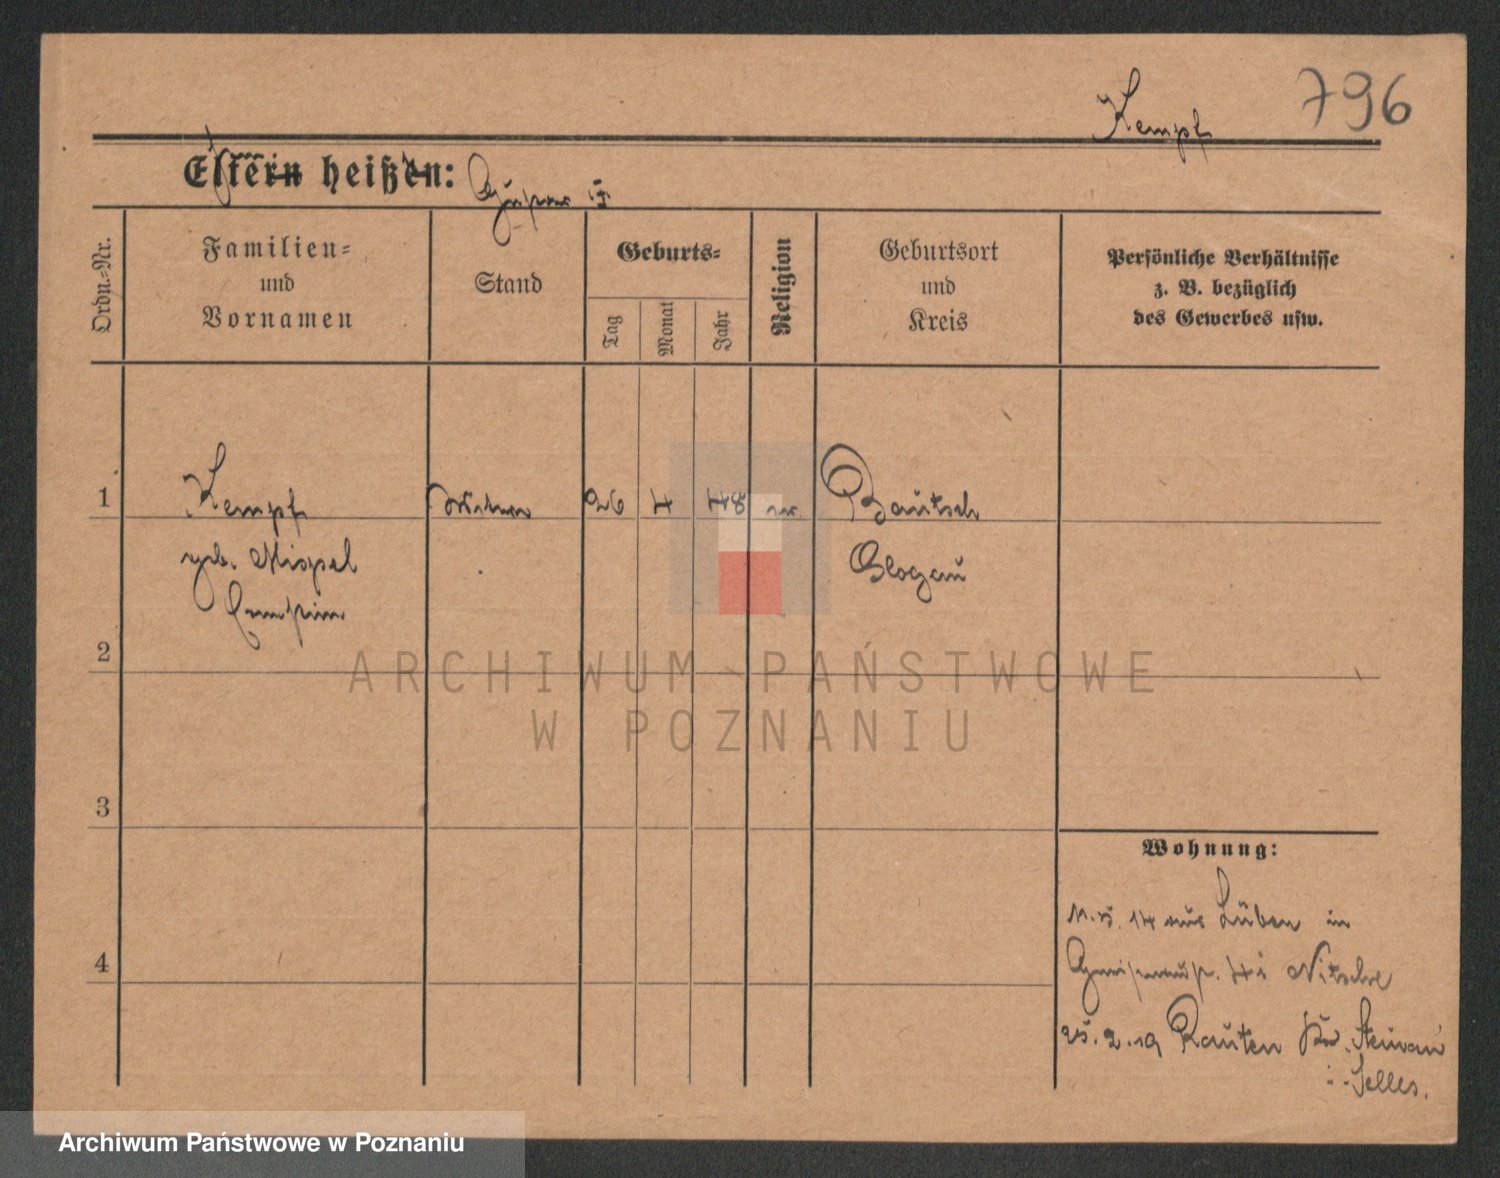 796
Kempf
Eltern heißen:
Ordn.-Nr.
Familien-
und
Vornamen
Stand
Geburts-
Tag
Monat
Jahr
Religion
Geburtsort
und
Kreis
Persönliche Verhältnisse
z. B. bezüglich
des Gewerbes usw.
1 Kempf 26 4 48 Bautsch
geb. Mispel Glogau
2
3
4
Wohnung:
14 aus Lüben in
Nitsche
25.2.19 Rauten Kr. Steinau
ARCHIWUM PAŃSTWOWE
W POZNANIU
Archiwum Państwowe w Poznaniu